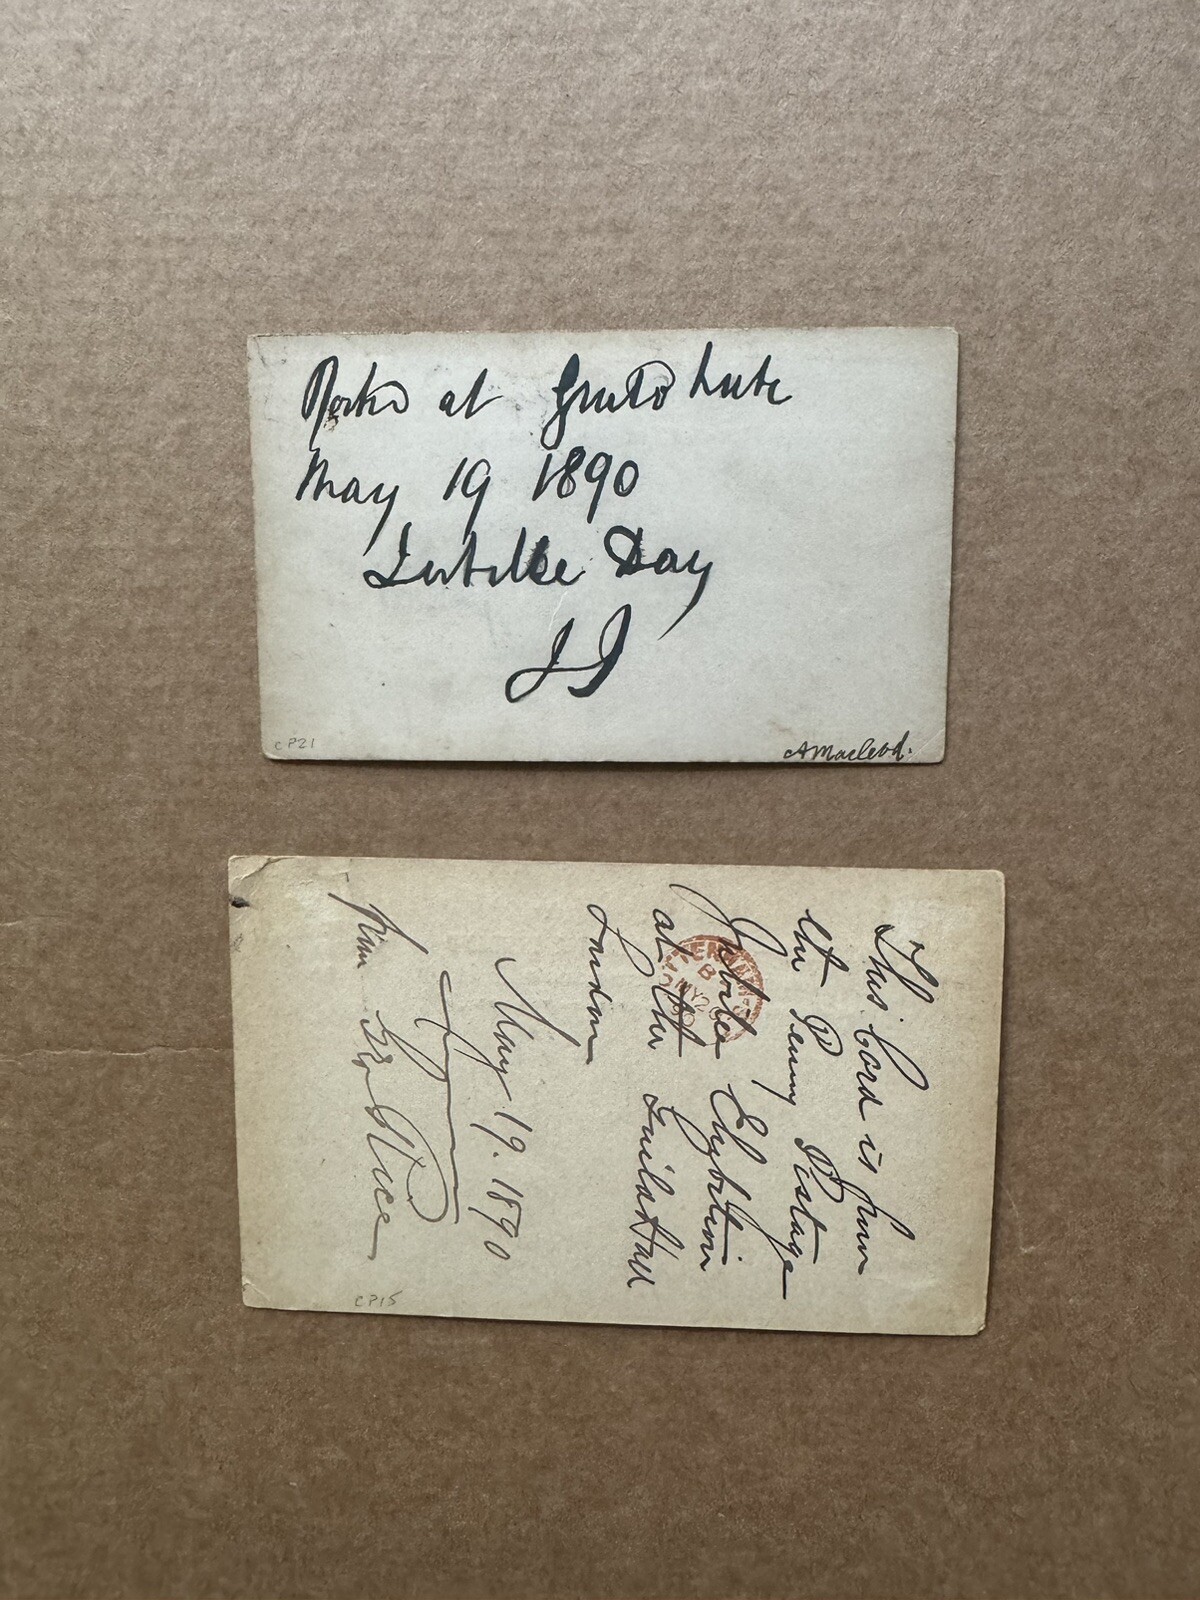 Posted at
May 19 1890
Day
CP21
AMacleod.
This Card is from
the Penny Postage
Jubilee Exhibition
at the Guild Hall
London
May 19. 1890
from
CP15
B
MY 20
90